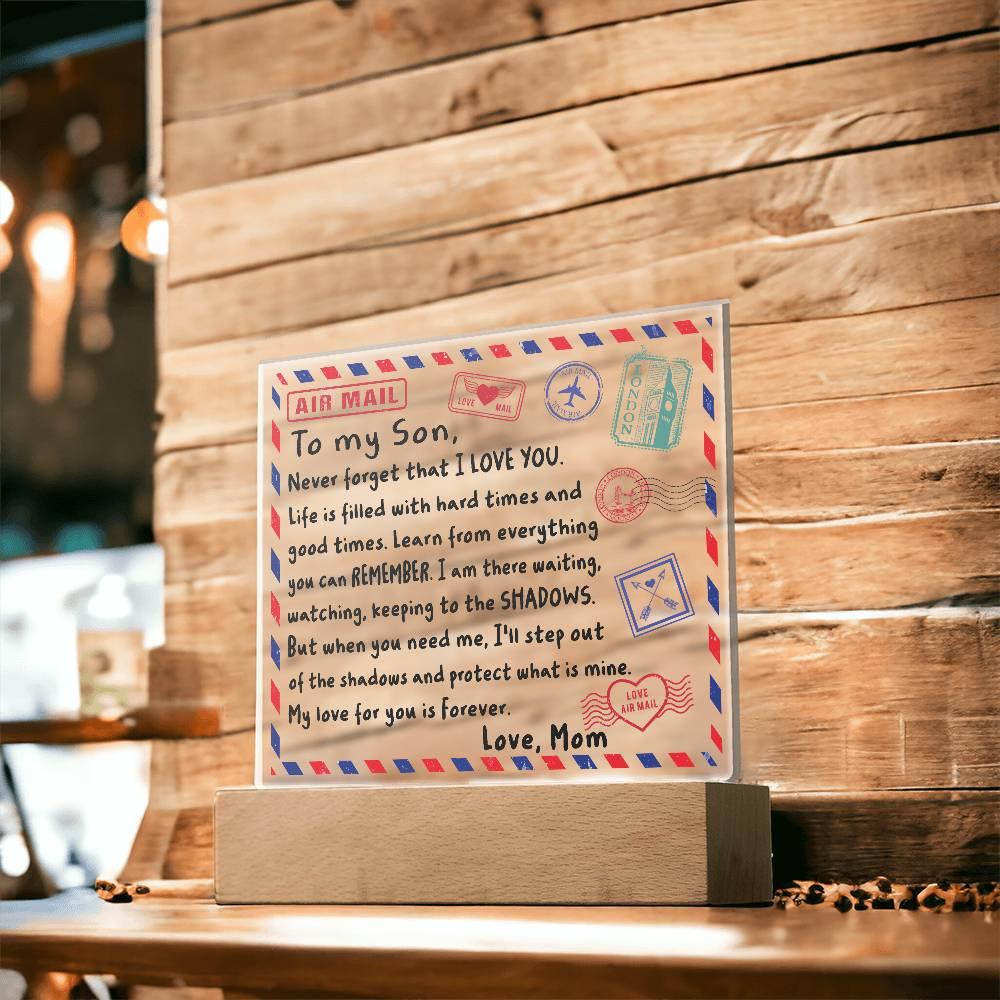 AIR MAIL
LOVE MAIL
AIR MAIL
LONDON
To my Son,
Never forget that I LOVE YOU.
Life is filled with hard times and
good times. Learn from everything
you can REMEMBER. I am there waiting,
watching, keeping to the SHADOWS.
But when you need me, I'll step out
of the shadows and protect what is mine.
My love for you is Forever.
LOVE
AIR MAIL
Love, Mom